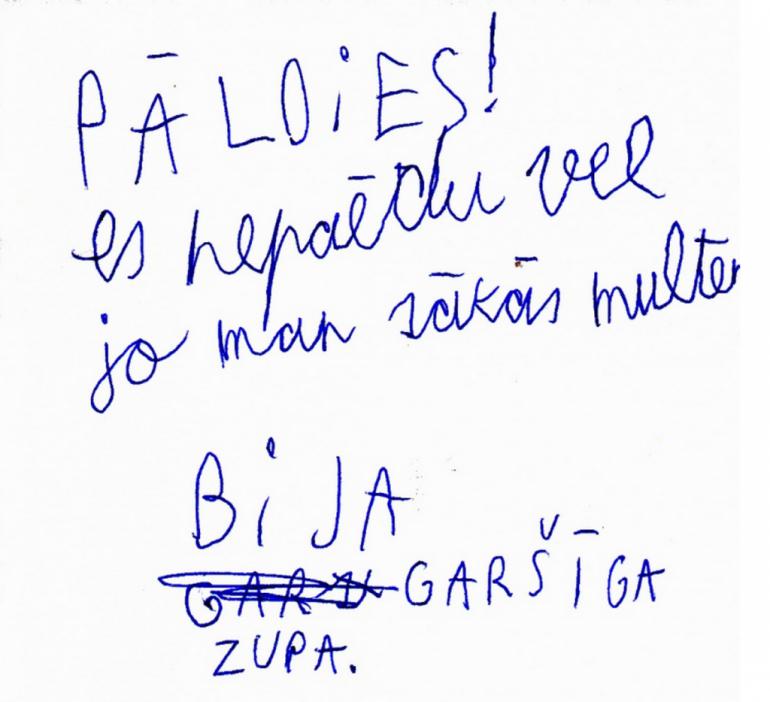 PĀLDiES!
es nepaēdu vel
jo man sākās multe
BiJA
GARŠĪGA
ZUPA.